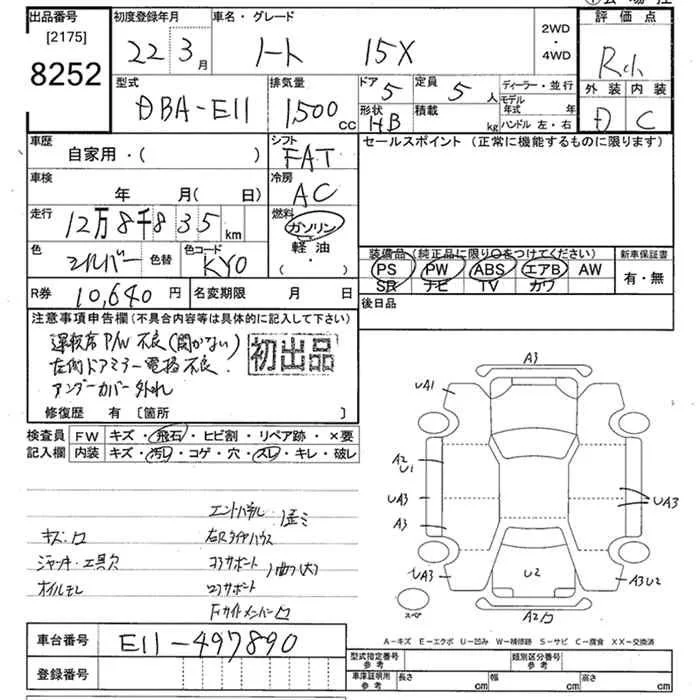 出品番号
[2175]
8252
初度登録年月
22 3月
車名・グレード
ノート 15X
2WD
・
4WD
評価点
外装 内装
D C
型式
DBA-E11
排気量
1500cc
ドア 5
定員 5人
形状 HB
積載 kg
ディーラー・並行
モデル年式 年
ハンドル 左・右
車歴
自家用・( )
シフト
FAT
セールスポイント (正常に機能するものに限ります)
車検
年 月( 日)
冷房
AC
走行
12万8千835km
燃料
ガソリン
軽油
( ・ )
色
シルバー
色替
色コード
KY0
装備品(純正品に限り○をつけてください)
PS PW ABS エアB AW
SR ナビ TV カワ
新車保証書
有・無
R券 10,640円
名変期限 月 日
後日品
注意事項申告欄(不具合内容等は具体的に記入して下さい)
運転席P/W不良(開かない)
左側ドアミラー電格不良.
アンダーカバー外れ
初出品
修復歴 有 [箇所 ]
検査員記入欄
FW キズ・飛石・ヒビ割・リペア跡・×要
内装 キズ・汚れ・コゲ・穴・スレ・キレ・破レ
A3
UA1
A2
U1
UA3
A3
UA3
UA3
U2
A3U2
スペア
エンドパネル
キズ・凹
右Rタイヤハウス
ジャッキ・工具欠
コアサポート
曲(大)
オイルモレ
A-キズ E-エクボ U-凹み W-補修跡 S-サビ C-腐食 XX-交換済
車台番号
E11-497890
登録番号
型式指定番号
参考
類別区分番号
参考
車庫証明用
参考
長さ cm
幅 cm
高さ cm